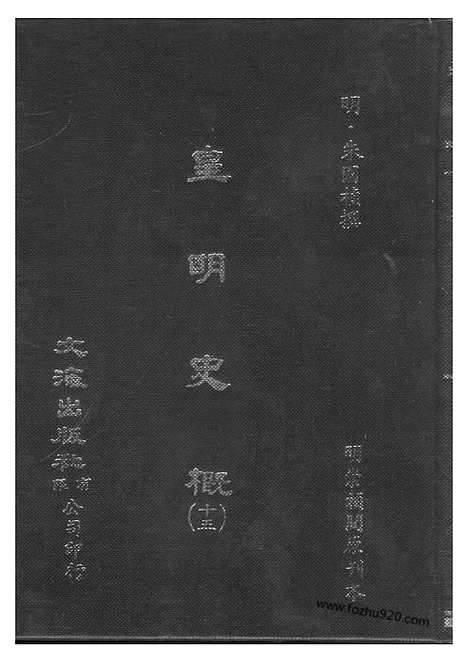 明·朱國禎撰
明崇禎間原刊本
皇明史概
(十五)
文海出版社有限公司印行
www.fozhu920.com